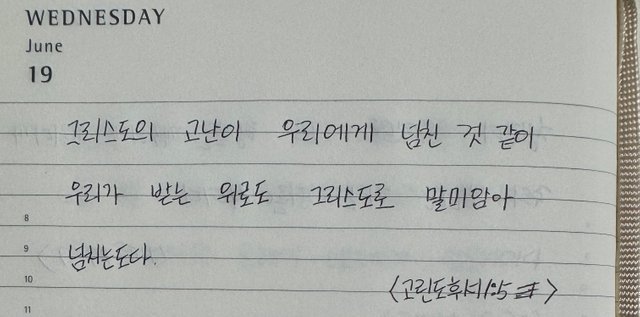 WEDNESDAY
June
19
그리스도의 고난이 우리에게 넘친 것 같이
우리가 받는 위로도 그리스도로 말미암아
8
넘치는도다.
9
10
<고린도후서1:5 >
11